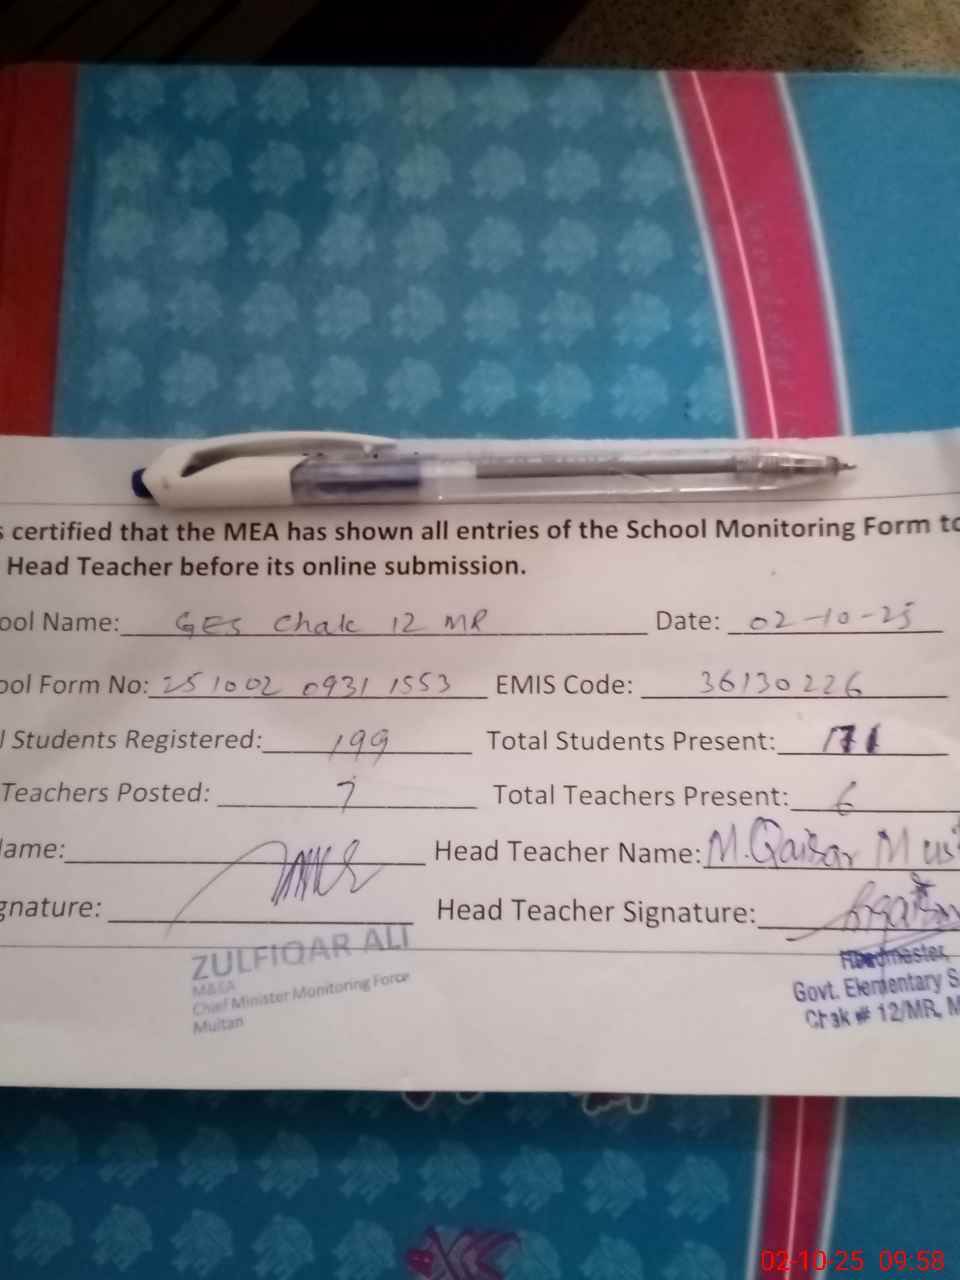 s certified that the MEA has shown all entries of the School Monitoring Form to
Head Teacher before its online submission.
ool Name: GES Chak 12 MR Date: 02-10-25
ool Form No: 251002 0931 1553 EMIS Code: 36130226
l Students Registered: 199 Total Students Present: 171
Teachers Posted: 7 Total Teachers Present: 6
ame: Head Teacher Name: M. Qaisar Mus
gnature: Head Teacher Signature:
ZULFIQAR ALI
M&EA
Chief Minister Monitoring Force
Multan
Headmaster,
Govt. Elementary S
Chak # 12/MR, M
02-10-25 09:58